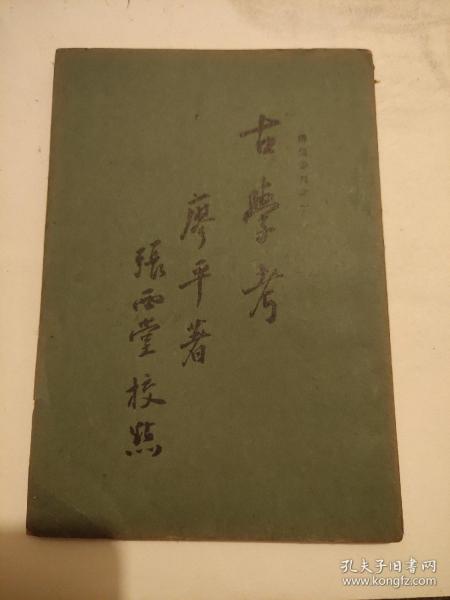 辨僞叢刊之一
古學考
廖平著
張西堂校點
孔夫子旧书网
www.kongfz.com